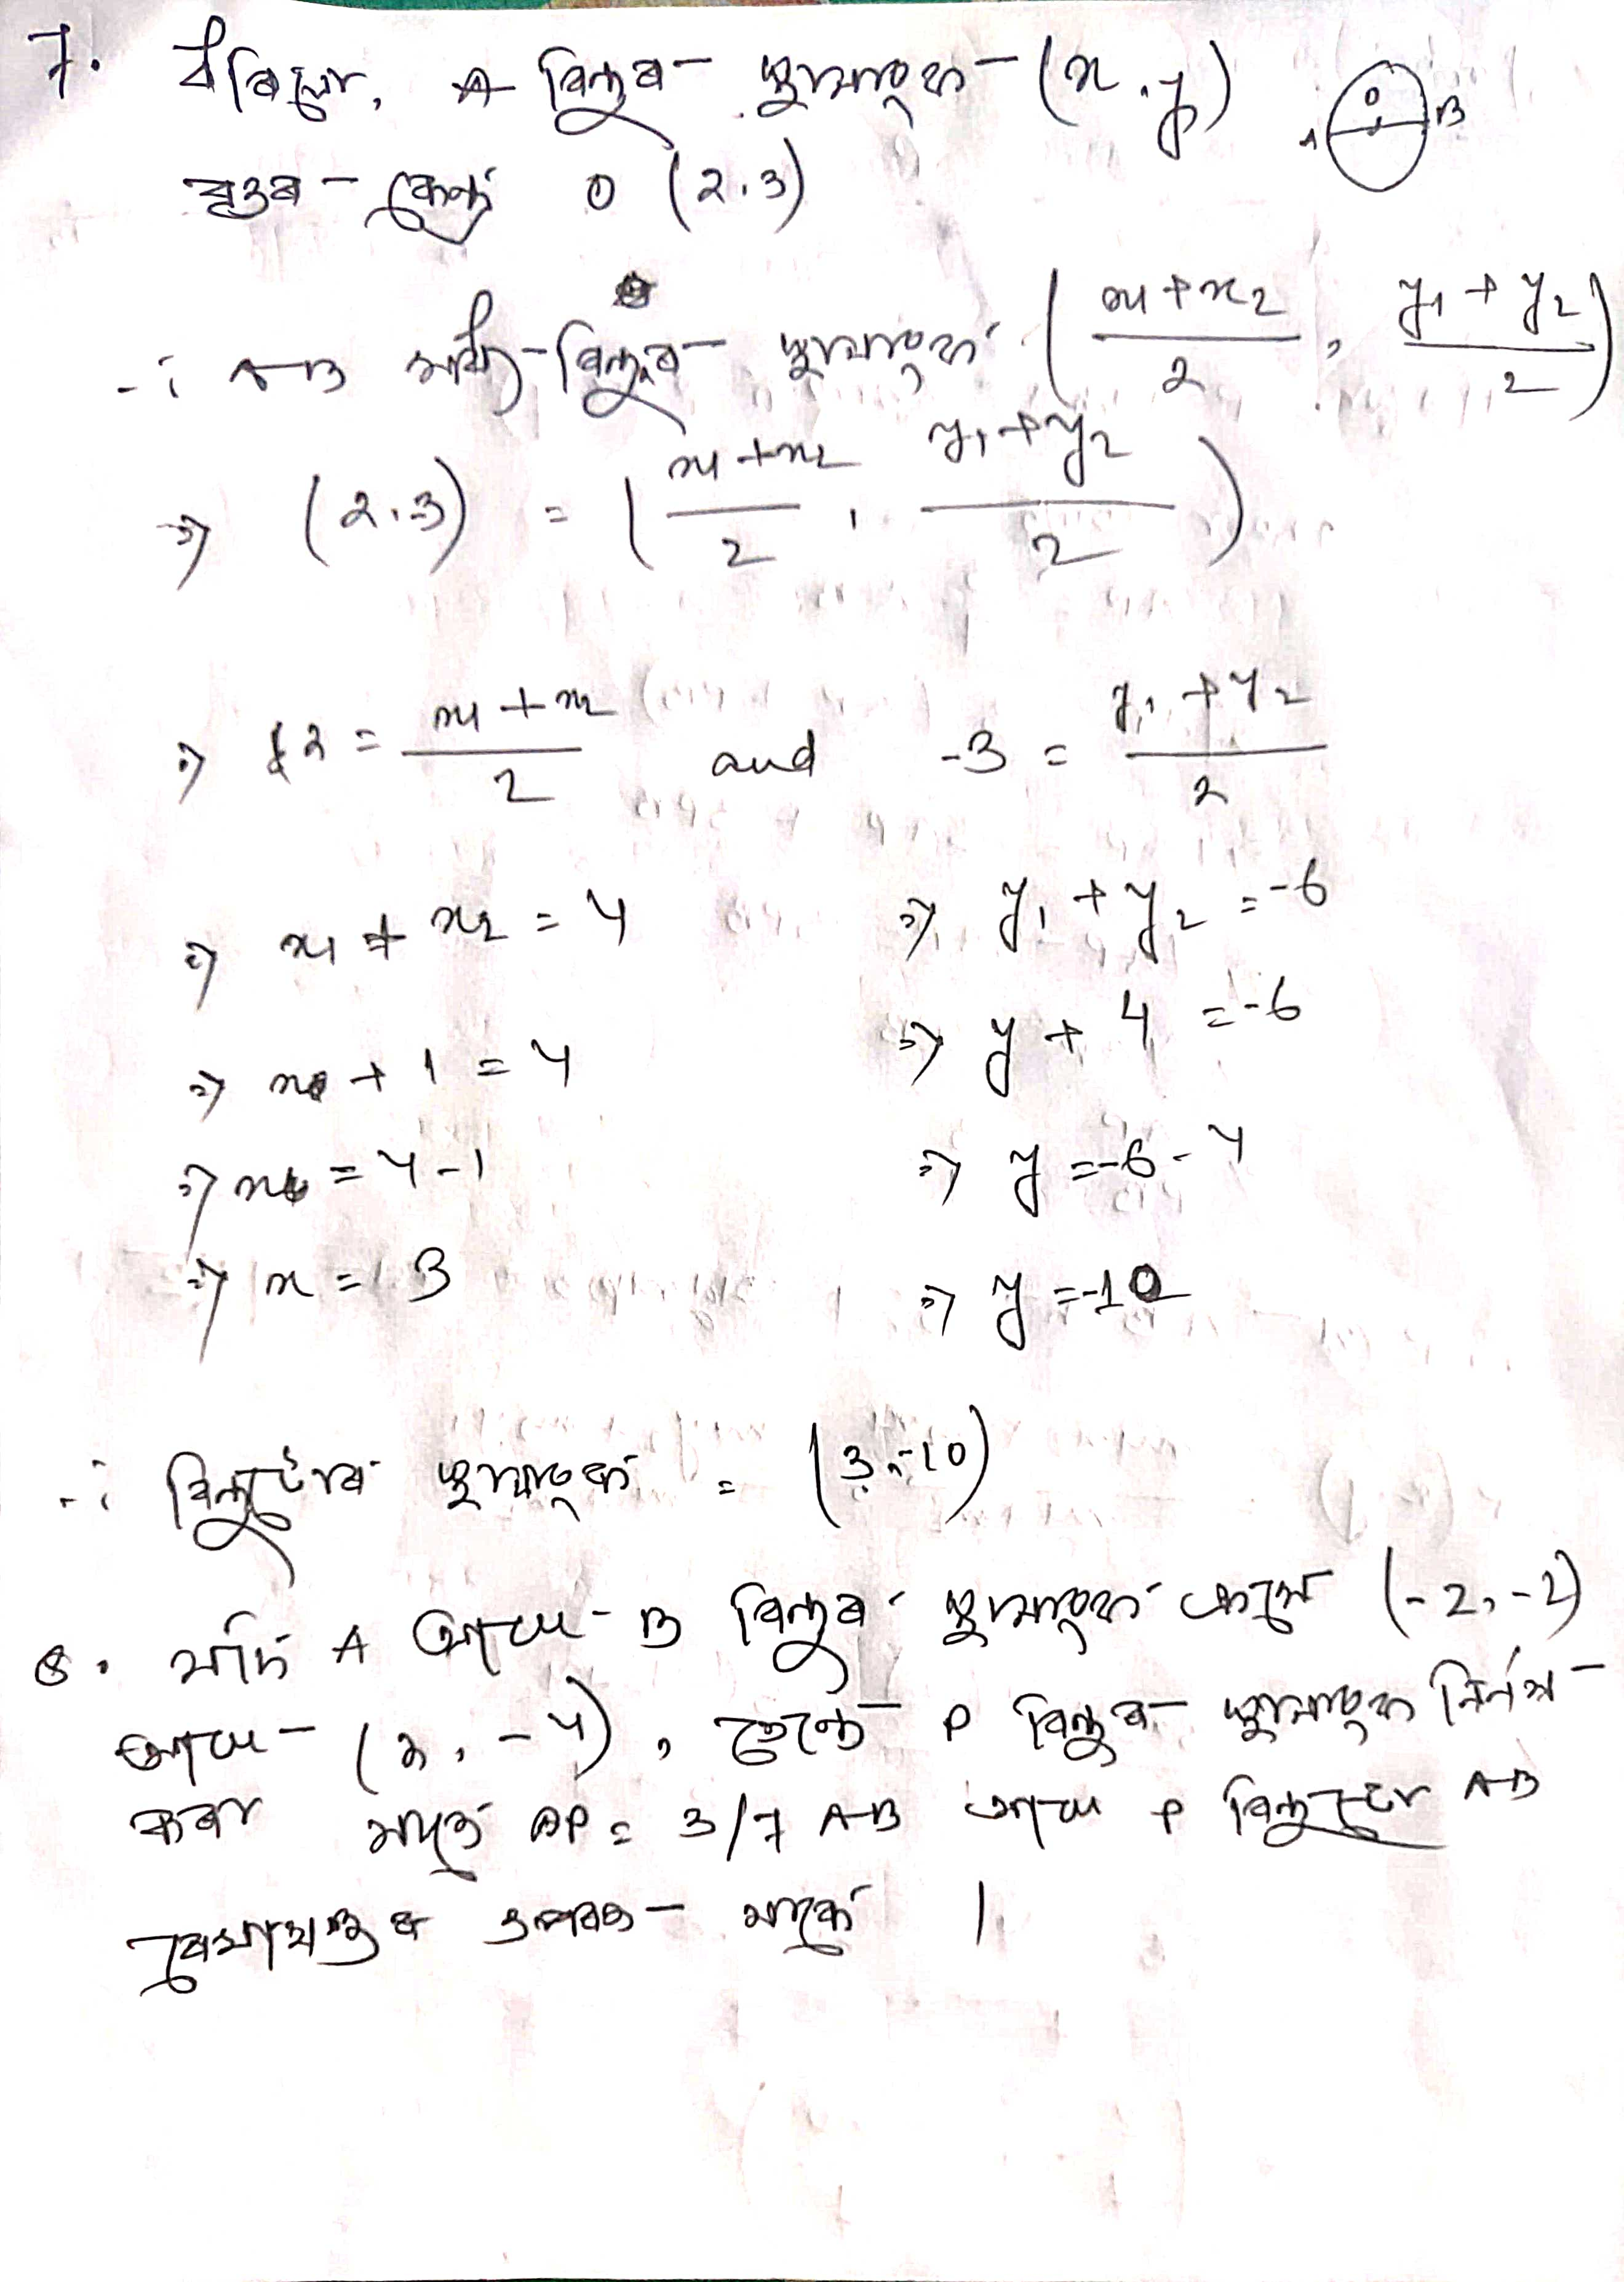 7. ধৰিলো, A বিন্দুৰ স্থানাংক (x, y) A O B
বৃত্তৰ কেন্দ্ৰ O (2.3)
∴ AB মধ্য-বিন্দুৰ স্থানাংক (x1+x2/2, y1+y2/2)
⇒ (2.3) = (x1+x2/2, y1+y2/2)
⇒ 2 = x1+x2/2 and -3 = y1+y2/2
⇒ x1 + x2 = 4 ⇒ y1 + y2 = -6
⇒ x + 1 = 4 ⇒ y + 4 = -6
⇒ x = 4-1 ⇒ y = -6-4
⇒ x = 3 ⇒ y = -10
∴ বিন্দুটোৰ স্থানাংক = (3,-10)
8. যদি A আৰু B বিন্দুৰ স্থানাংক ক্ৰমে (-2,-2)
আৰু (2, -4), তেন্তে P বিন্দুৰ স্থানাংক নিৰ্ণয়
কৰা যাতে AP = 3/7 AB আৰু P বিন্দুটো AB
ৰেখাখণ্ডৰ ওপৰত থাকে।